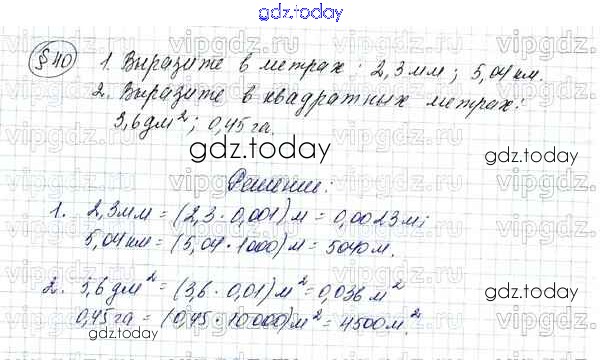 gdz.today
§ 40
1. Выразите в метрах: 2,3 мм; 5,04 км.
2. Выразите в квадратных метрах:
3,6 дм²; 0,45 га.
gdz.today
gdz.today
Решение:
1. 2,3 мм = (2,3 · 0,001) м = 0,0023 м;
5,04 км = (5,04 · 1000) м = 5040 м.
2. 3,6 дм² = (3,6 · 0,01) м² = 0,036 м²
0,45 га = (0,45 · 10000) м² = 4500 м².
gdz.today
gdz.today